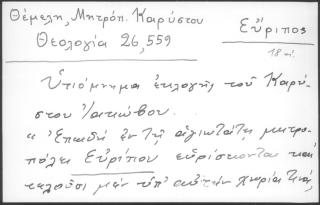 Θέμελη, Μητρόπ. Καρύστου
Θεολογία 26,559
Εὔριπος
18 αἰ.
Ὑπόμνημα ἐκλογῆς τοῦ Καρύ-
στου Ἰακώβου.
"Ἐπειδὴ ἐν τῇ ἁγιωτάτῃ μητρο-
πόλει Εὐρίπου εὑρίσκονται καὶ
τελοῦσι μὲν ὑπ' αὐτὴν χωρία τινά,